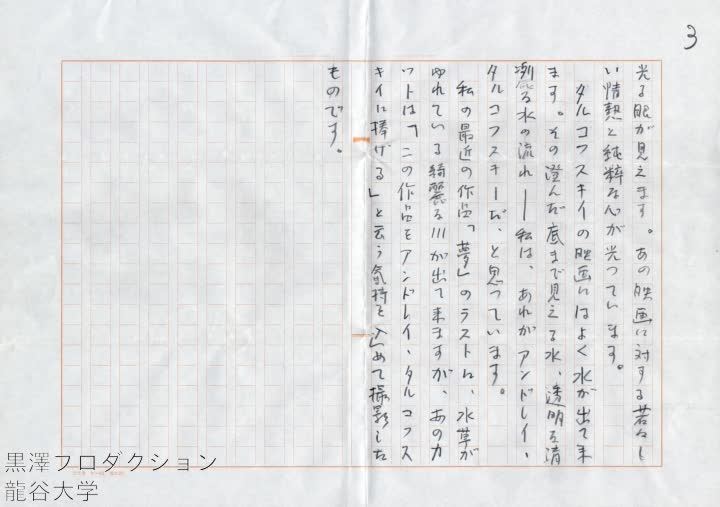 3
光る眼が見えます。あの映画に対する若々し
い情熱と純粋な心が光っています。
タルコフスキイの映画にはよく水が出て来
ます。その澄んだ底まで見える水、透明な清
る水の流れ──私は、あれがアンドレイ、
タルコフスキーだ、と思っています。
私の最近の作品「夢」のラストに、水草が
ゆれている綺麗な川が出て来ますが、あのカ
ットは「この作品をアンドレイ、タルコフス
キイに捧げる」と云う気持を込めて撮影した
ものです。
黒澤プロダクション
龍谷大学